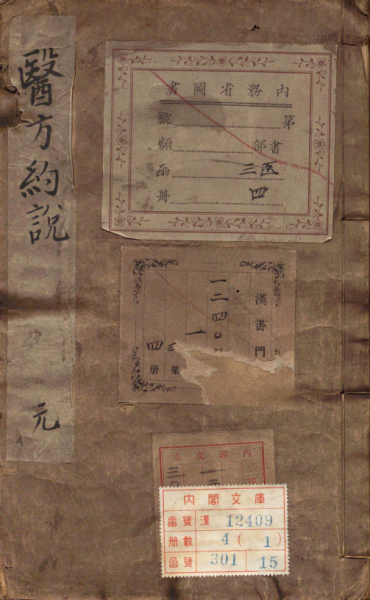 醫方約說
元
內務省圖書
第
號
書部
類
医三
函
四
冊
漢書門
一二四〇
一
架
四
冊
內閣文庫
內閣文庫
番號 漢 12409
冊數 4 (1)
函號 301 15